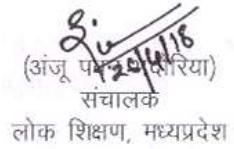 20/4/18
(अंजू
संचालक
लोक शिक्षण, मध्यप्रदेश